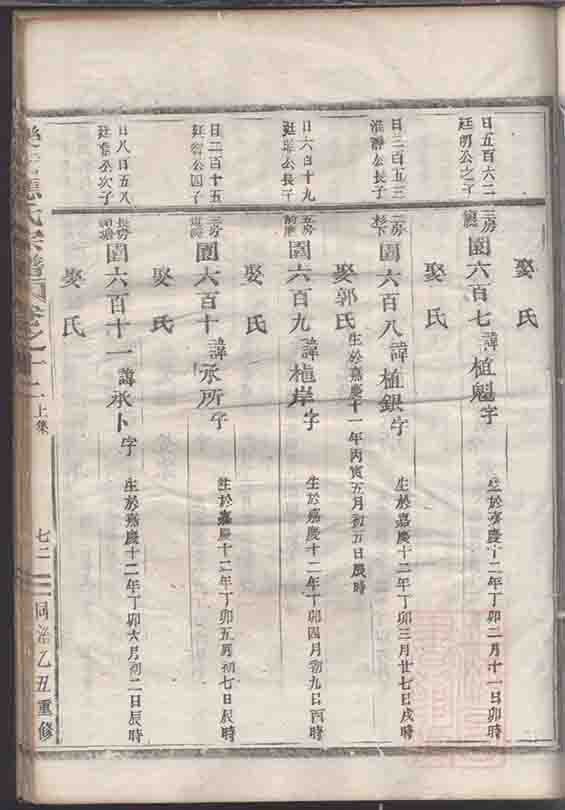 娶氏
日五百六二
廷明公之子
三房
園六百七諱植魁字
生於嘉慶十二年丁卯二月十一日卯時
娶氏
日三百五三
淮聯公長子
二房
園六百八諱植銀字
生於嘉慶十二年丁卯三月廿七日戌時
娶郭氏生於嘉慶十一年丙寅五月初五日辰時
日六百十九
廷公長子
五房
園六百九諱植岸字
生於嘉慶十二年丁卯四月初九日酉時
娶氏
日二百十五
廷公四子
三房
園六百十諱承所字
生於嘉慶十二年丁卯五月初七日辰時
娶氏
日八百五八
廷公次子
長房
園六百十一諱承卜字
生於嘉慶十二年丁卯六月初二日辰時
娶氏
氏宗譜卷之十二上集
七二
同治乙丑重修